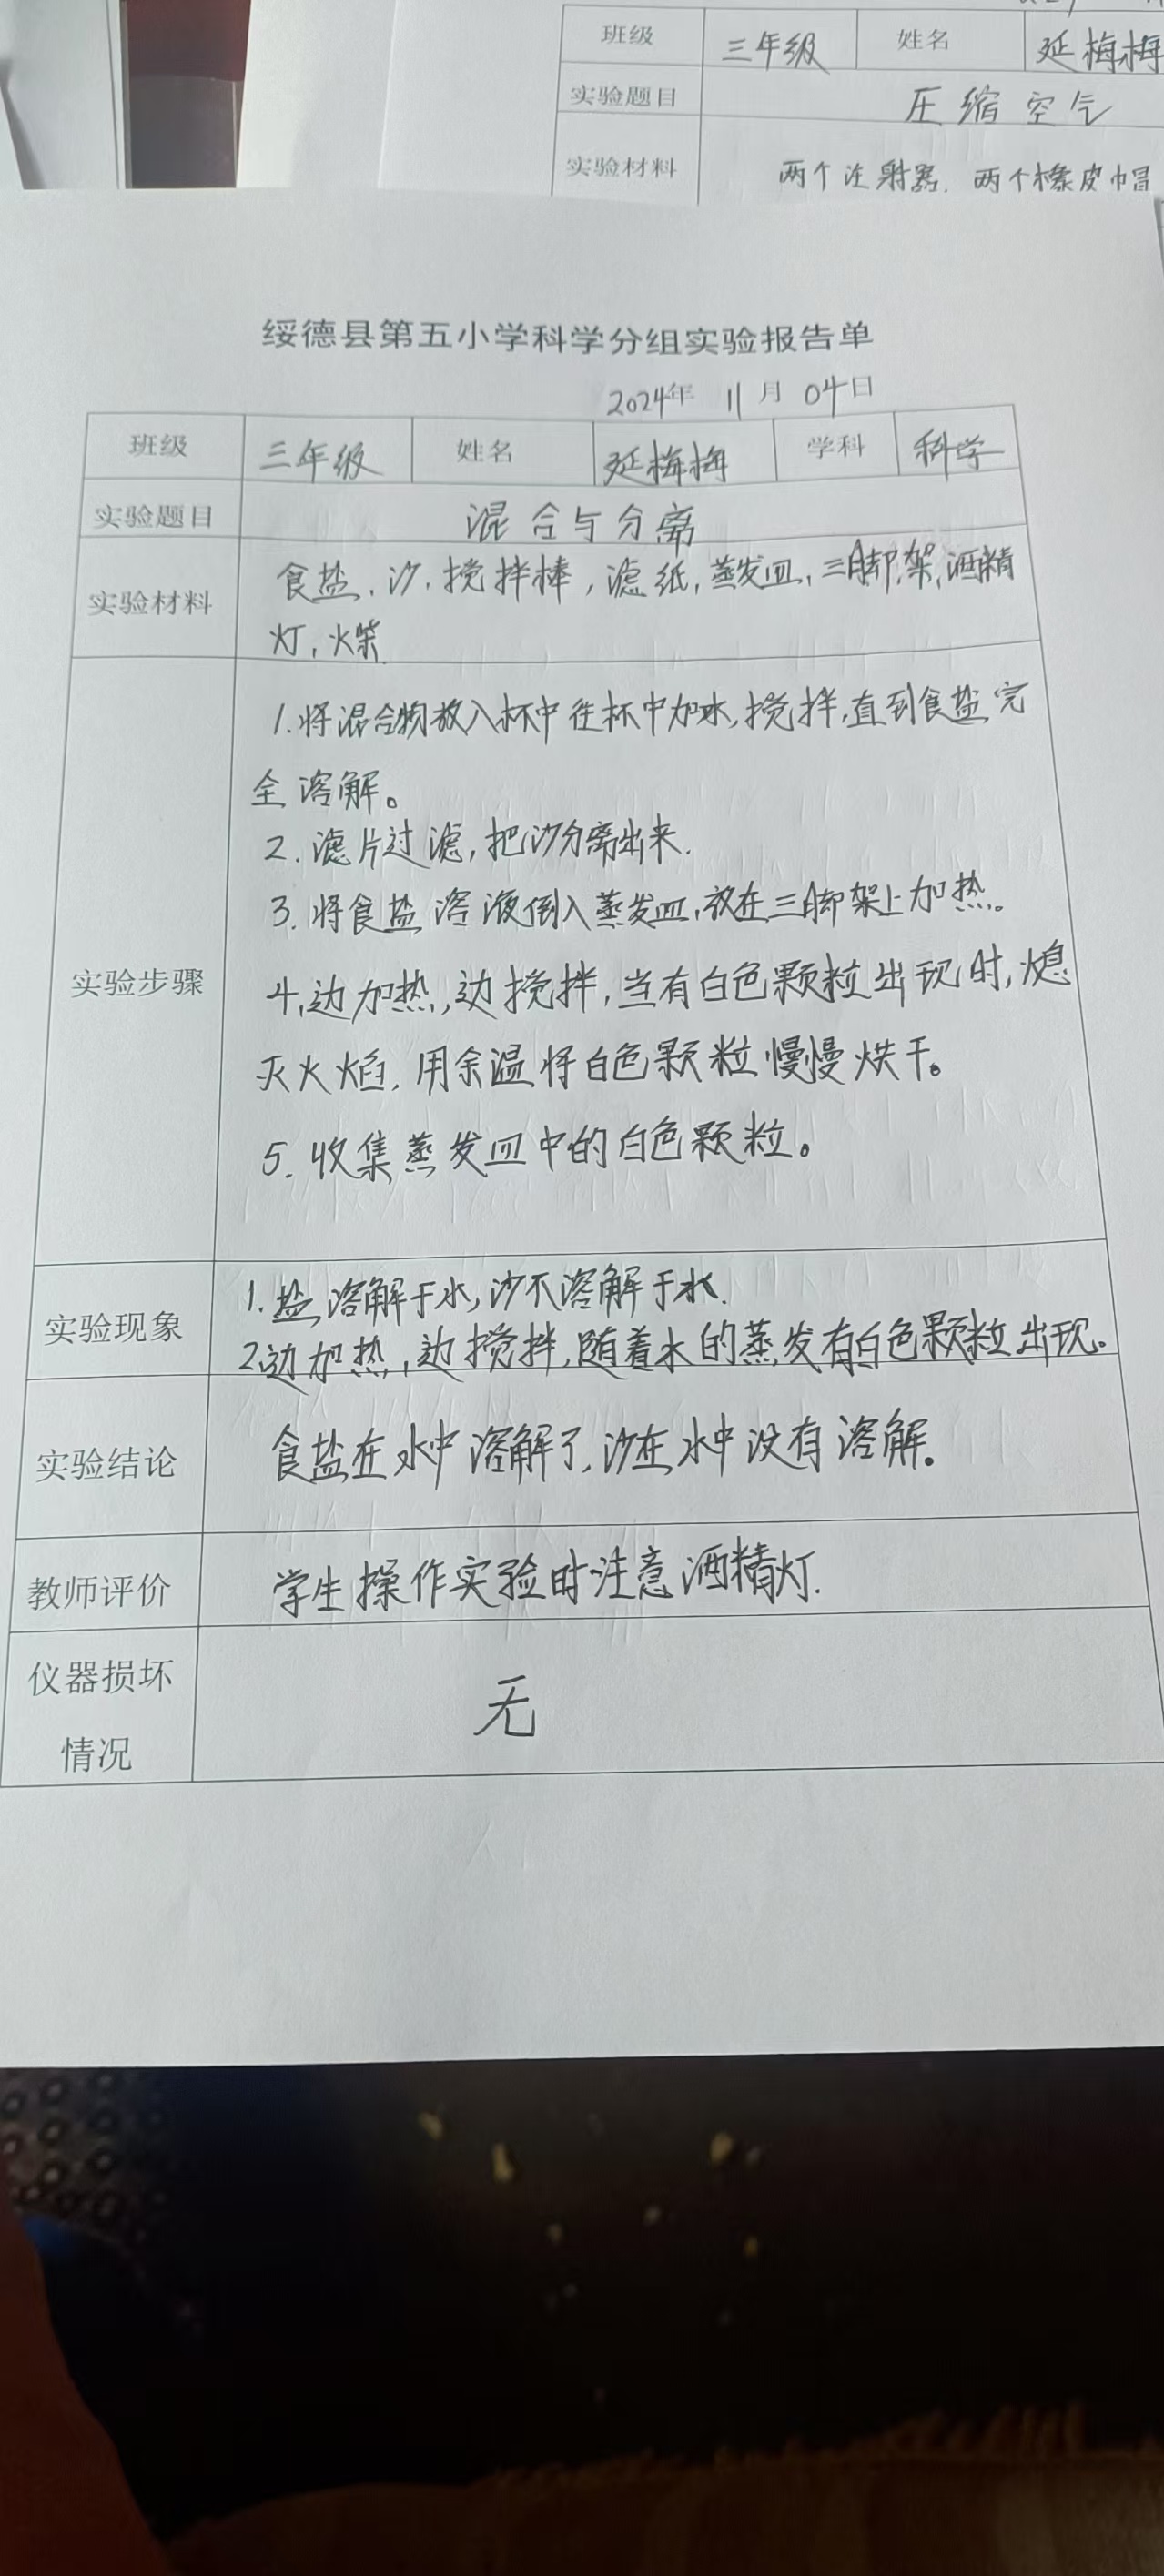 班级 三年级 姓名 延梅梅
实验题目 压缩空气
实验材料 两个注射器、两个橡皮帽
绥德县第五小学科学分组实验报告单
2024年 11月 04日
班级 三年级 姓名 延梅梅 学科 科学
实验题目 混合与分离
实验材料 食盐、沙、搅拌棒,滤纸,蒸发皿,三脚架,酒精
灯,火柴
1.将混合物放入杯中往杯中加水,搅拌,直到食盐完
全溶解。
2.滤片过滤,把沙分离出来.
3.将食盐溶液倒入蒸发皿,放在三脚架上加热。
实验步骤 4,边加热,边搅拌,当有白色颗粒出现时,熄
灭火焰,用余温将白色颗粒慢慢烘干。
5.收集蒸发皿中的白色颗粒。
实验现象 1.盐溶解于水,沙不溶解于水.
2边加热,边搅拌,随着水的蒸发有白色颗粒出现。
实验结论 食盐在水中溶解了,沙在水中没有溶解。
教师评价 学生操作实验时注意酒精灯.
仪器损坏
情况 无